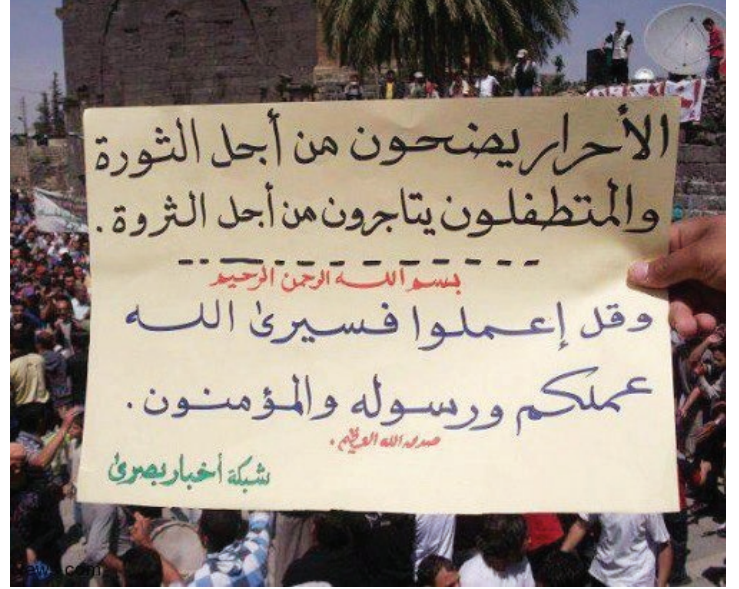 الأحرار يضحون من أجل الثورة
والمتطفلون يتاجرون من أجل الثروة.
بسم الله الرحمن الرحيم
وقل إعملوا فسيرىٰ الله
عملكم ورسوله والمؤمنون.
صدق الله العظيم.
شبكة أخبار بصرىٰ